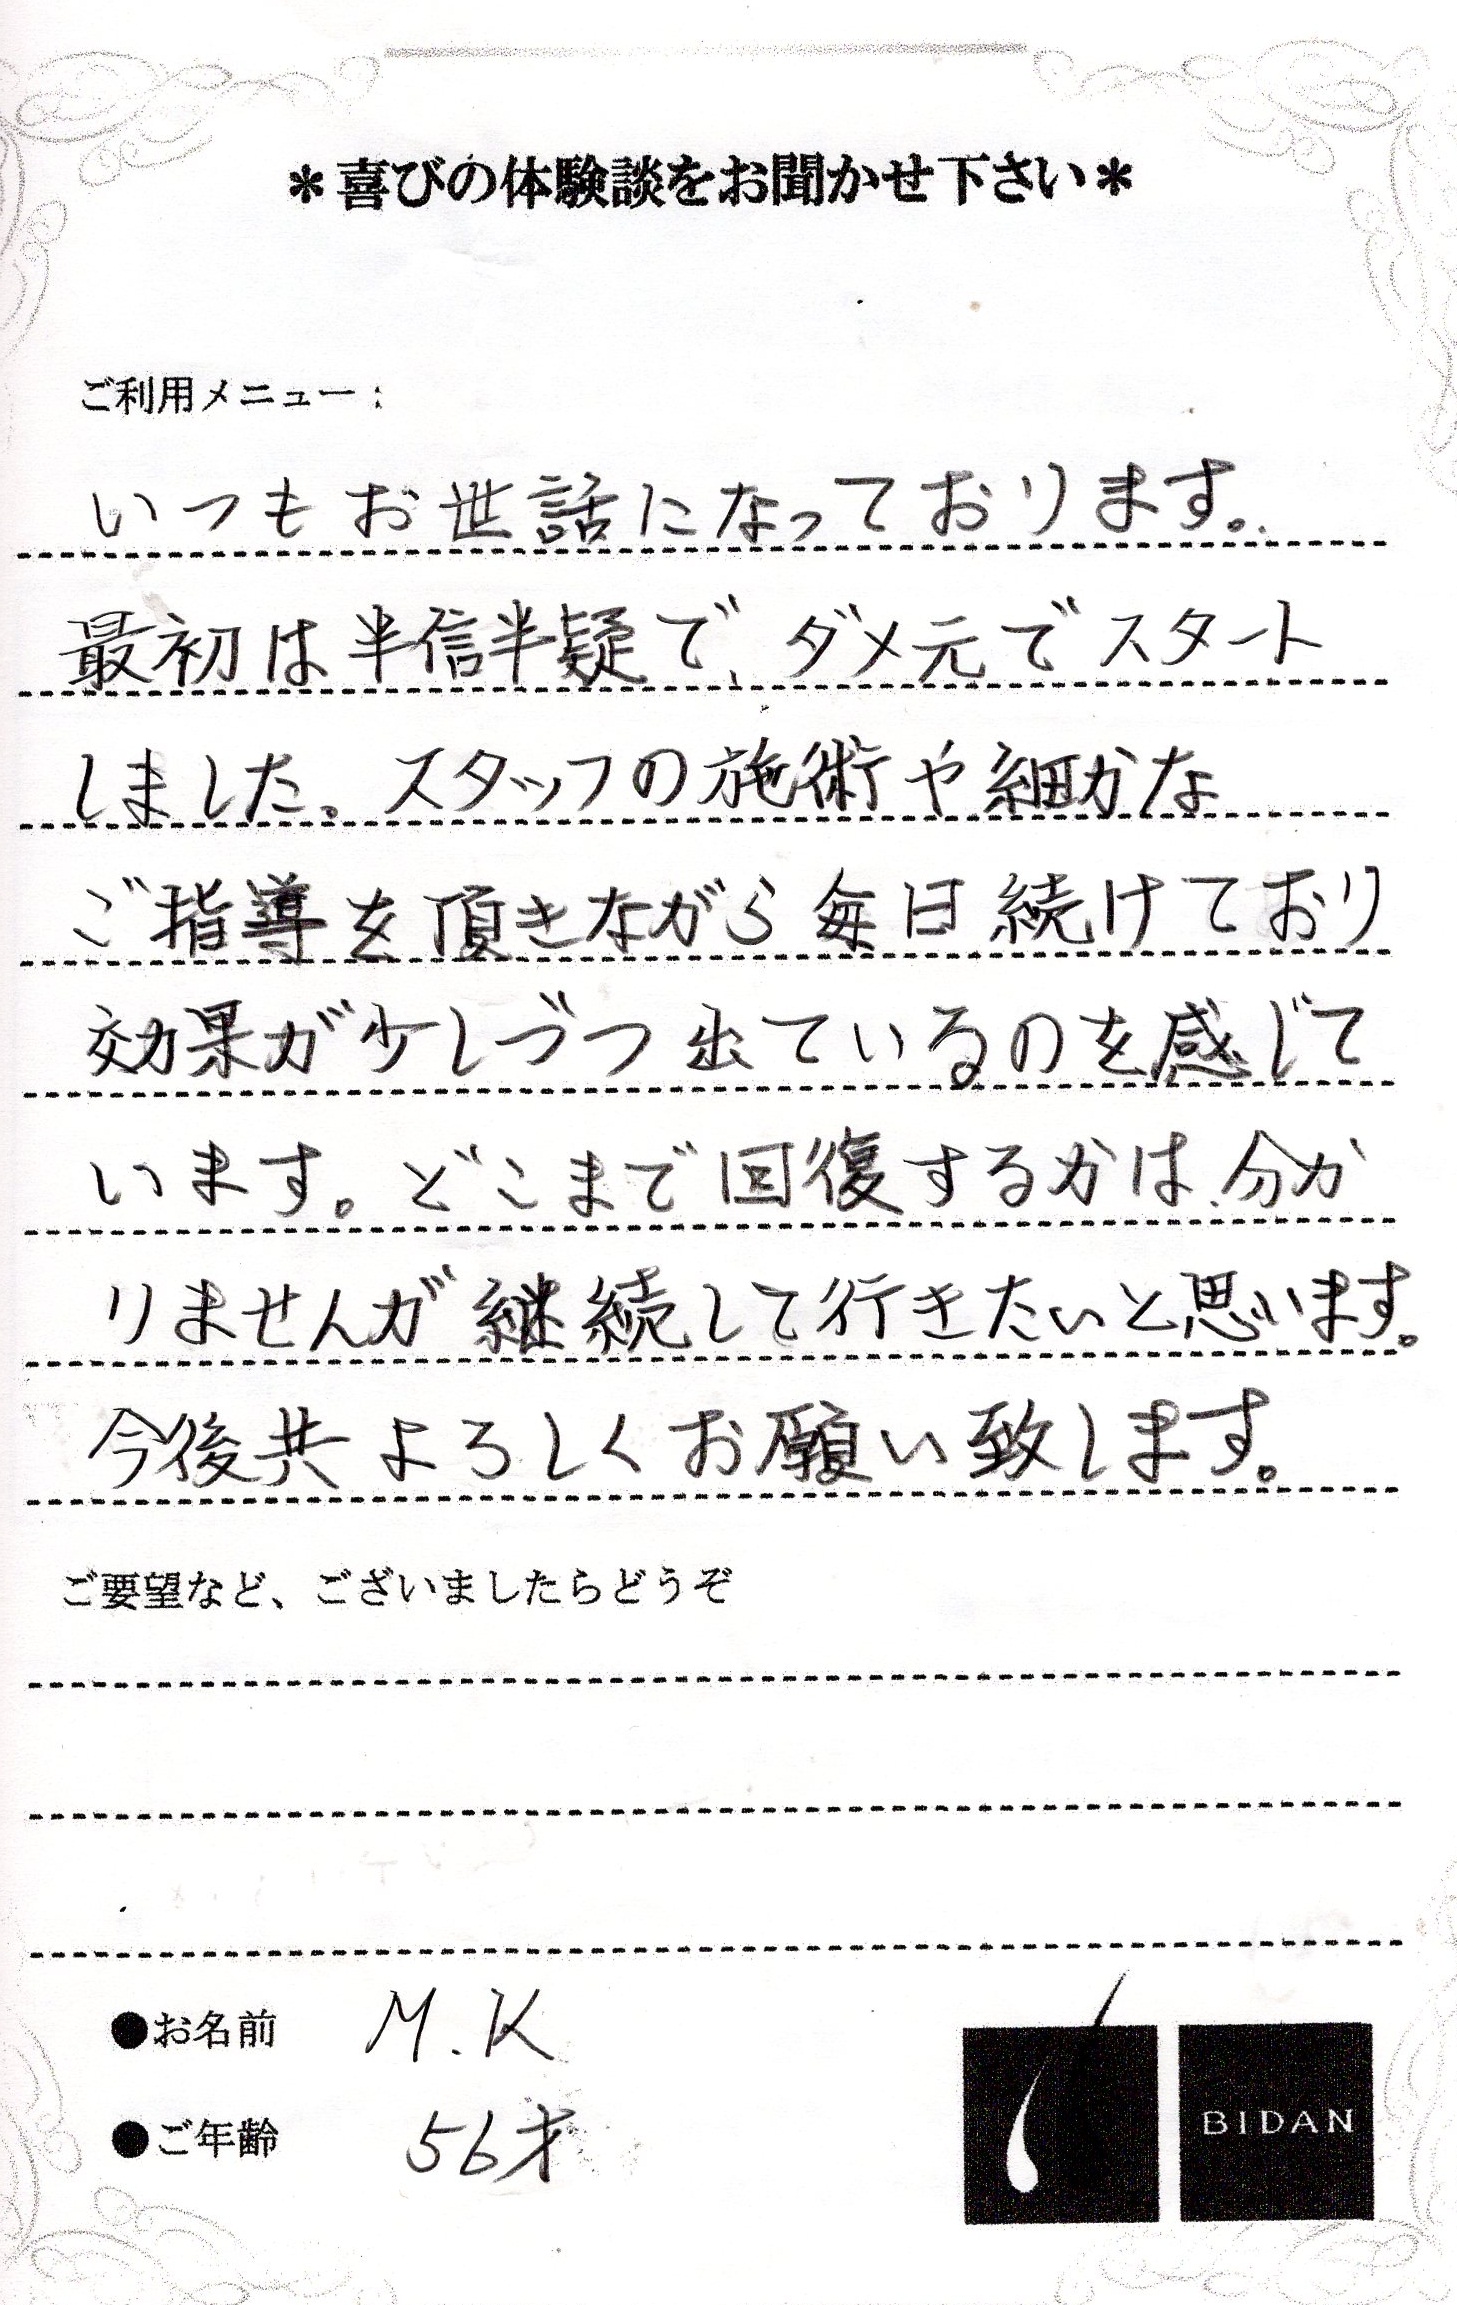 ＊喜びの体験談をお聞かせ下さい＊
ご利用メニュー：
いつもお世話になっております。
最初は半信半疑で、ダメ元でスタート
しました。スタッフの施術や細かな
ご指導を頂きながら毎日続けており
効果が少しづつ出ているのを感じて
います。どこまで回復するかは、分か
りませんが継続して行きたいと思います。
今後共よろしくお願い致します。
ご要望など、ございましたらどうぞ
●お名前 M.K
●ご年齢 56才
BIDAN